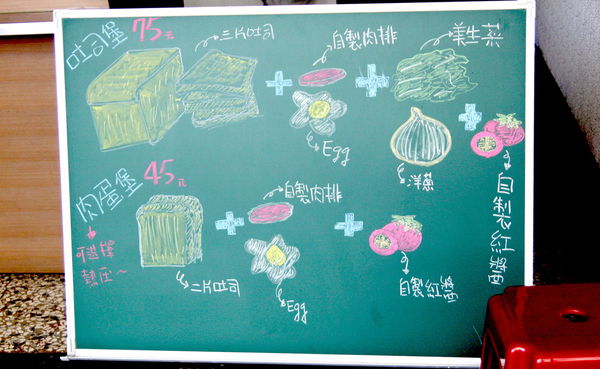 吐司堡 75元
三片吐司
自製肉排
美生菜
Egg
洋蔥
自製紅醬
肉蛋堡 45元
可選擇
熱压~
二片吐司
自製肉排
Egg
自製紅醬